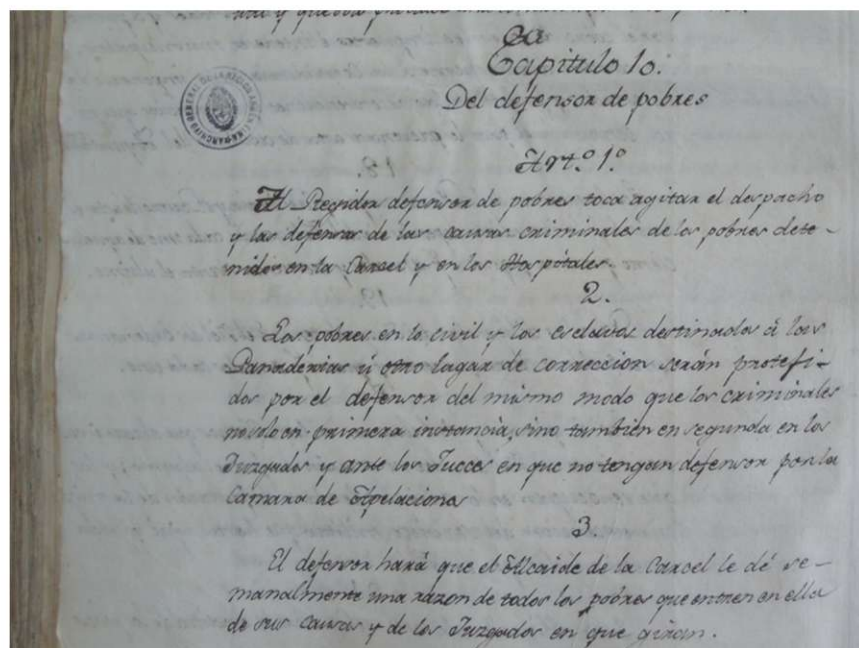 Capitulo 10.
Del defensor de pobres
Art.º 1.º
Al Regidor defensor de pobres toca agitar el despacho
y las defensas de las causas criminales de los pobres dete-
nidos en la Carcel y en los Hospitales.
2.
Los pobres en lo civil y los esclavos destinados á las
Panaderias ú otro lugar de correccion serán protefi-
dos por el defensor del mismo modo que los criminales
no solo en primera instancia, sino tambien en segunda en los
Juzgados y ante los Jueces en que no tengan defensor por la
Camara de Apelaciones
3.
El defensor hará que el Alcaide de la Carcel le dé se-
manalmente una razon de todos los pobres que entren en ella
de sus causas y de los Juzgados en que giran.